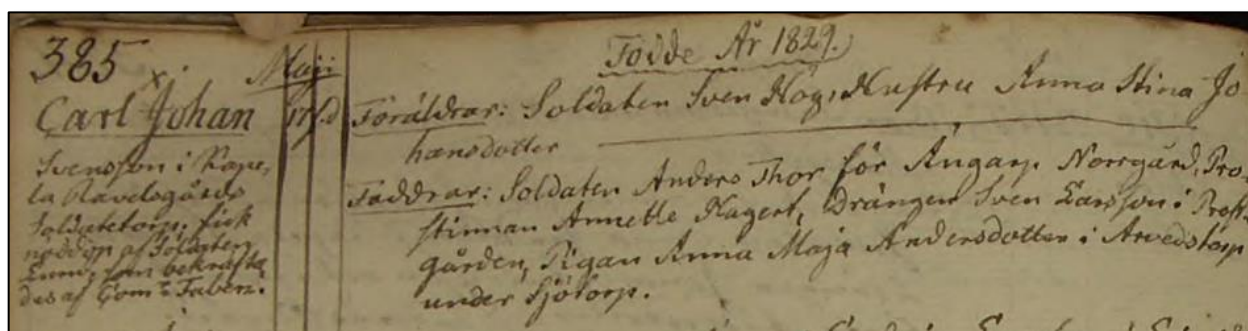 385
Maji
Födde År 1829.
Carl Johan
Svensson i
soldatetorp, fick
nöddop af Soldaten
Lund, som bekräfta
des af Com:
Föräldrar: Soldaten Sven Hög, Hustru Anna Stina Jo
hansdotter
Faddrar: Soldaten Anders Thor för Ängarp Norrgård, Pro
stinnan Annette Hagert, Drängen Sven Larsson i Prost
gården, Pigan Anna Maja Andersdotter i Arvedstorp
under Sjötorp.